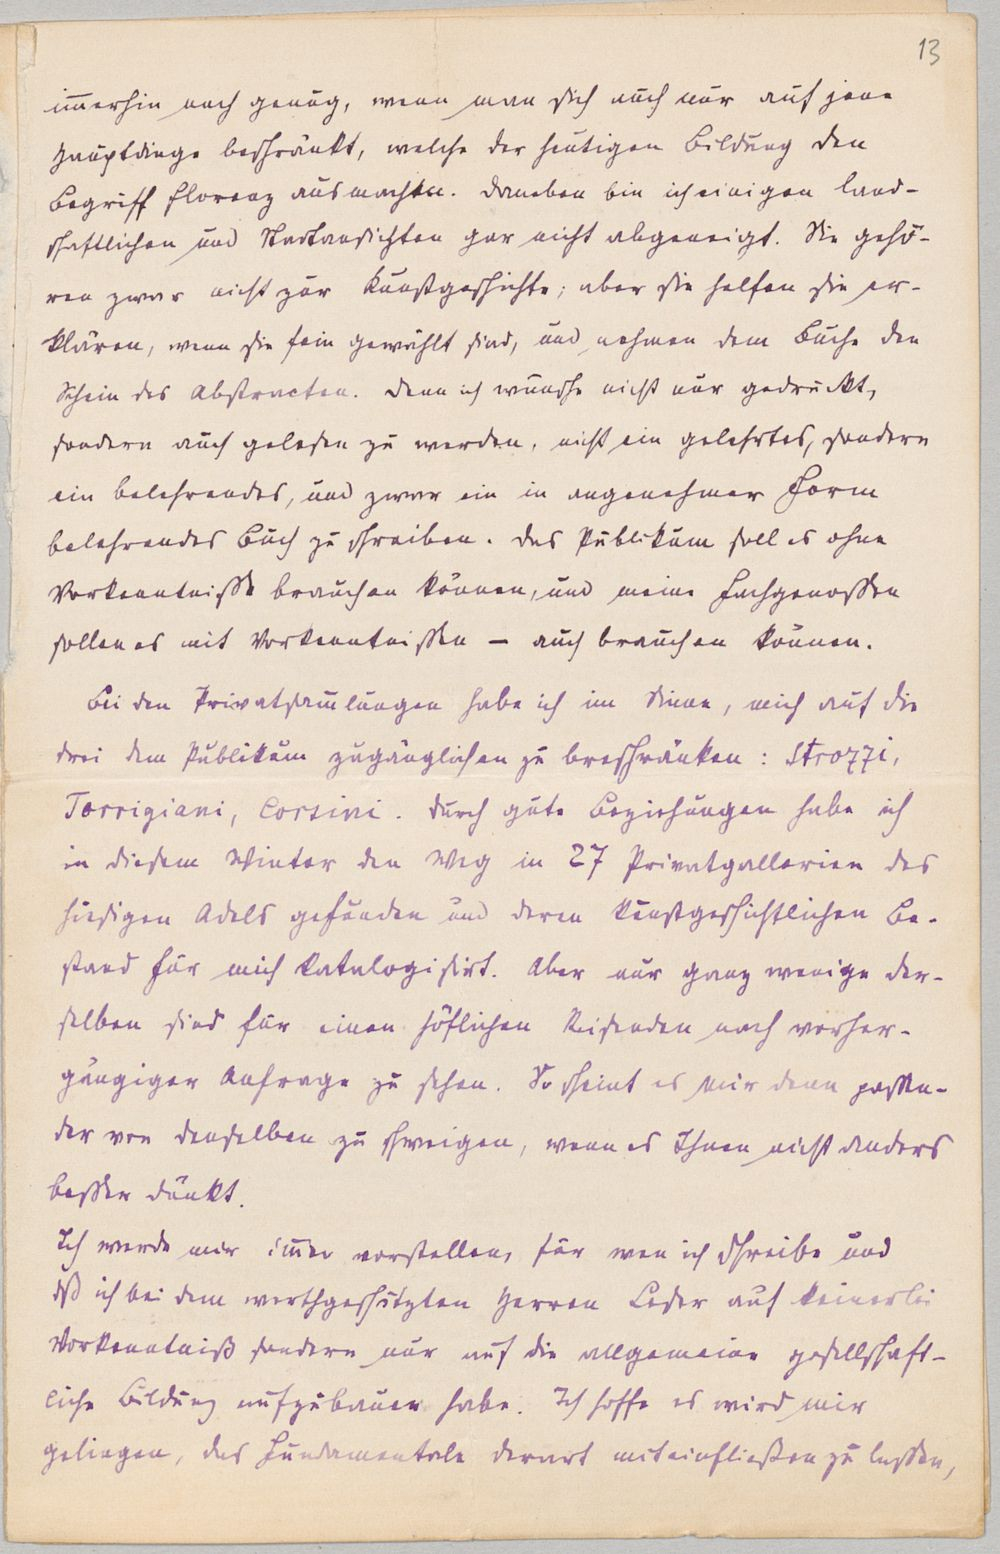 13
im̄erhin noch genug, wenn man sich auch nur auf jene
Hauptdinge beschränkt, welche der heutigen Bildung den
Begriff Florenz ausmachten. Daneben bin ich einigen land-
schaftlichen und Stadtansichten gar nicht abgeneigt. Sie gehö-
ren zwar nicht zur Kunstgeschichte; aber sie helfen sie er-
klären, wenn sie fein gewählt sind, und nehmen dem Buche den
Schein des Abstracten. Denn ich wünsche nicht nur gedruckt,
sondern auch gelesen zu werden, nicht ein gelehrtes, sondern
ein belehrendes, und zwar ein in angenehmer Form
belehrendes Buch zu schreiben. Das Publikum soll es ohne
Vorkenntnisse brauchen können, und meine Fachgenossen
sollen es mit Vorkenntnissen – auch brauchen können.
Bei den Privatsam̄lungen habe ich im Sinne, mich auf die
drei dem Publikum zugänglichen zu breschränken: Strozzi,
Torrigiani, Corsini. Durch gute Beziehungen habe ich
in diesem Winter den Weg in 27 Privatgallerien des
hiesigen Adels gefunden und deren kunstgeschichtlichen Be-
stand für mich katalogisirt. Aber nur ganz wenige der-
selben sind für einen höflichen Reisenden nach vorher-
gängiger Anfrage zu sehen. So scheint es mir denn passen-
der von denselben zu schweigen, wenn es Ihnen nicht anders
besser dünkt.
Ich werde mir im̄er vorstellen, für wen ich schreibe und
dß ich bei dem werthgeschätzten Herren Leser auf keinerlei
Vorkenntniß sondern nur auf die allgemeine gesellschaft-
liche Bildung aufzubauen habe. Ich hoffe es wird mir
gelingen, das Fundamentale derart miteinfließen zu lassen,